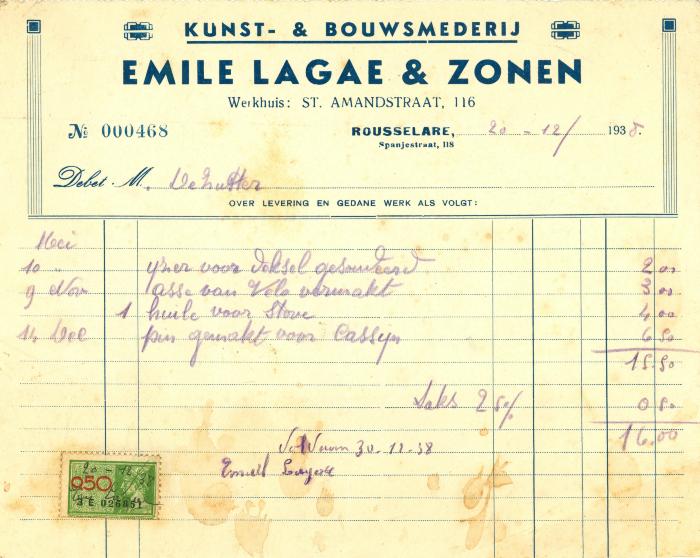 KUNST- & BOUWSMEDERIJ
EMILE LAGAE & ZONEN
Werkhuis: ST. AMANDSTRAAT, 116
№ 000468
ROUSSELARE, 20 - 12/ 1938.
Spanjestraat, 118
Debet M.
OVER LEVERING EN GEDANE WERK ALS VOLGT:
Mei
10 " ijzer voor deksel gesoudeerd 2 00
9 Nov asse van Velo vermakt 3 00
1 huile voor Stove 4 00
14 Dec pin gemakt voor Cassyn 6 50
15.50
Taks 2 50% 0 50
16.00
Voldaan 30-12-38
Emiel Lagae
20-12-38
0,50
3 E 026851